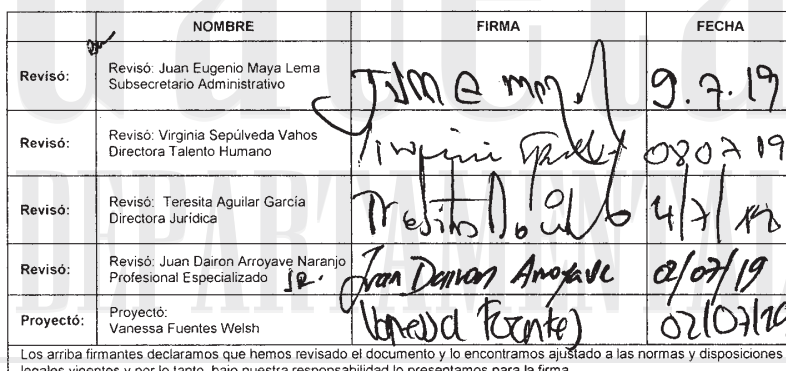 NOMBRE FIRMA FECHA
Revisó: Revisó: Juan Eugenio Maya Lema
Subsecretario Administrativo
9.7.19
Revisó: Revisó: Virginia Sepúlveda Vahos
Directora Talento Humano
080719
Revisó: Revisó: Teresita Aguilar García
Directora Jurídica
4/7/19
Revisó: Revisó: Juan Dairon Arroyave Naranjo
Profesional Especializado
Juan Dairon Arroyave 02/07/19
Proyectó: Proyectó:
Vanessa Fuentes Welsh
Vanessa Fuentes
Los arriba firmantes declaramos que hemos revisado el documento y lo encontramos ajustado a las normas y disposiciones
legales vigentes y por lo tanto, bajo nuestra responsabilidad lo presentamos para la firma.
DEPARTAMENTAL